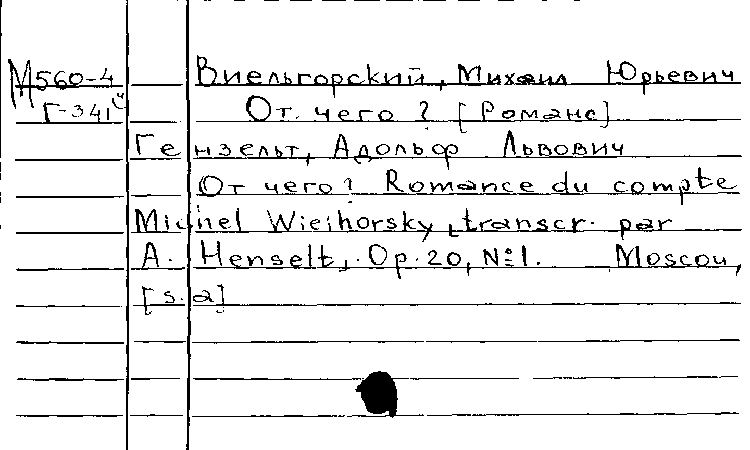 М560-4
Г-341
Виельгорский, Михаил Юрьевич
От. чего? [Романс]
Гензельт, Адольф Львович
От чего? Romance du compte
Michel Wieihorsky, transcr. par
A. Henselt,. Op.20, №1. Moscou,
[s.a]